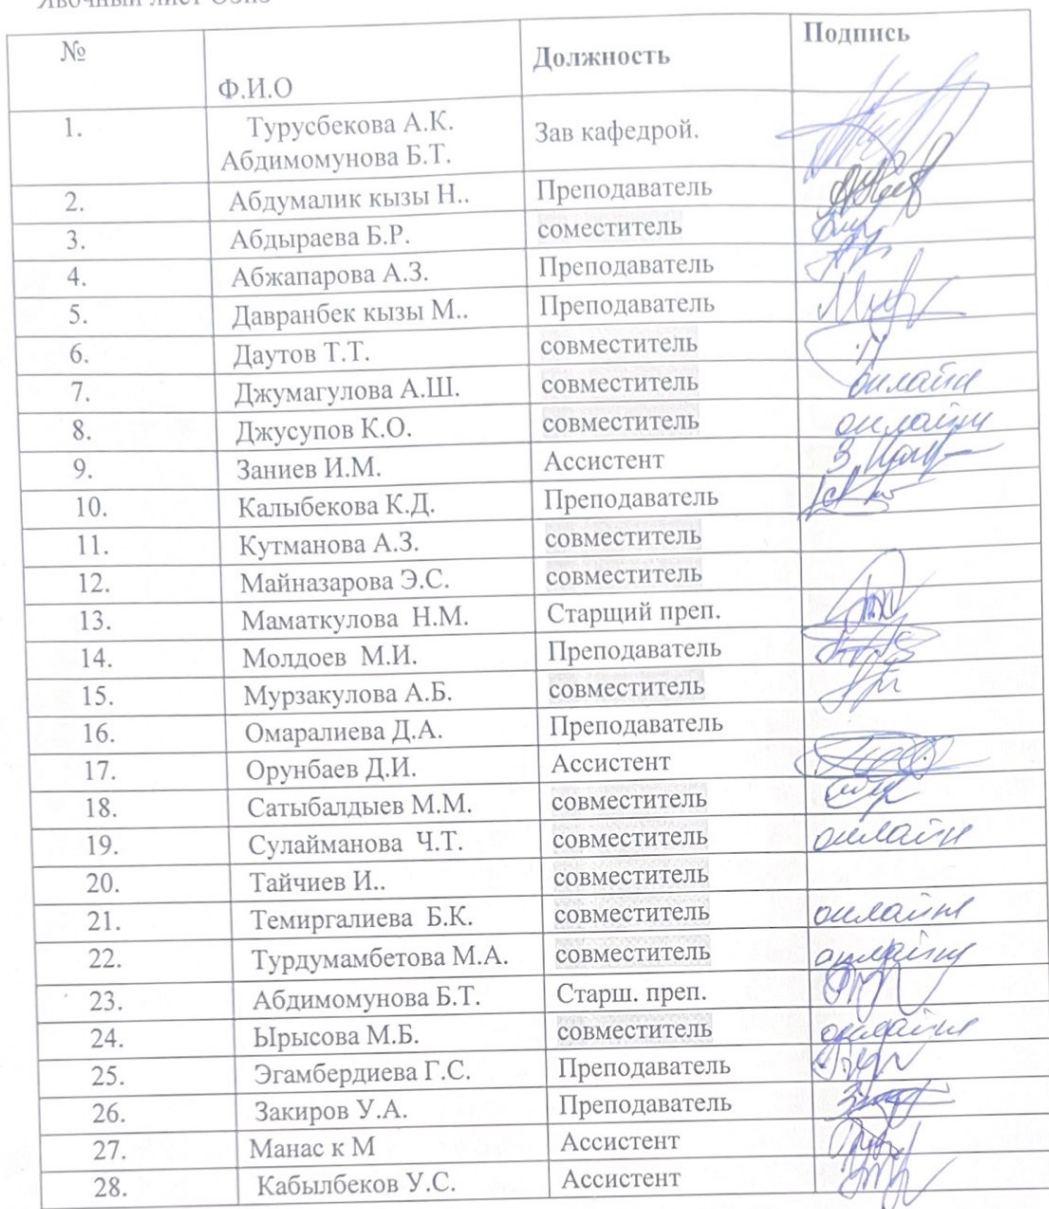 Явочный лист
№ Ф.И.О Должность Подпись
1. Турусбекова А.К. Зав кафедрой.
Абдимомунова Б.Т.
2. Абдумалик кызы Н.. Преподаватель
3. Абдыраева Б.Р. соместитель
4. Абжапарова А.З. Преподаватель
5. Давранбек кызы М.. Преподаватель
6. Даутов Т.Т. совместитель
7. Джумагулова А.Ш. совместитель онлайн
8. Джусупов К.О. совместитель онлайн
9. Заниев И.М. Ассистент
10. Калыбекова К.Д. Преподаватель
11. Кутманова А.З. совместитель
12. Майназарова Э.С. совместитель
13. Маматкулова Н.М. Старщий преп.
14. Молдоев М.И. Преподаватель
15. Мурзакулова А.Б. совместитель
16. Омаралиева Д.А. Преподаватель
17. Орунбаев Д.И. Ассистент
18. Сатыбалдыев М.М. совместитель
19. Сулайманова Ч.Т. совместитель онлайн
20. Тайчиев И.. совместитель
21. Темиргалиева Б.К. совместитель онлайн
22. Турдумамбетова М.А. совместитель онлайн
23. Абдимомунова Б.Т. Старш. преп.
24. Ырысова М.Б. совместитель онлайн
25. Эгамбердиева Г.С. Преподаватель
26. Закиров У.А. Преподаватель
27. Манас к М Ассистент
28. Кабылбеков У.С. Ассистент